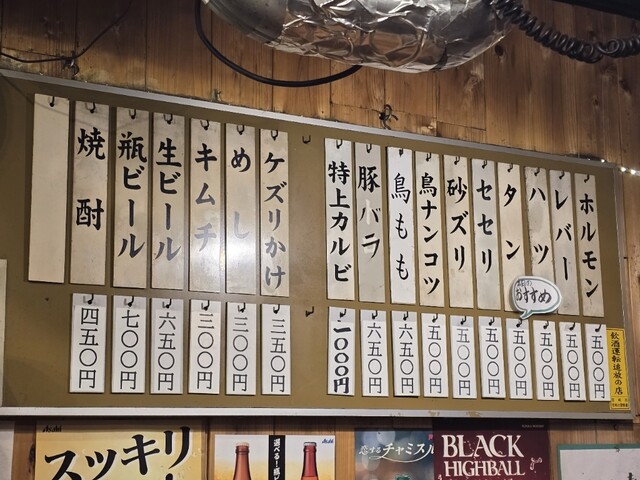 ホルモン
五〇〇円
レバー
五〇〇円
ハツ
五〇〇円
タン
五〇〇円
セセリ
五〇〇円
砂ズリ
五〇〇円
鳥ナンコツ
五〇〇円
鳥もも
六五〇円
豚バラ
六五〇円
特上カルビ
一〇〇〇円
ケズリかけ
三五〇円
めし
三〇〇円
キムチ
三〇〇円
生ビール
六五〇円
瓶ビール
七〇〇円
焼酎
四五〇円
おすすめ
飲酒運転追放の店
Asahi
スッキリ
Asahi
選べる!
Asahi
恋するチャミスル
BLACK
HIGHBALL